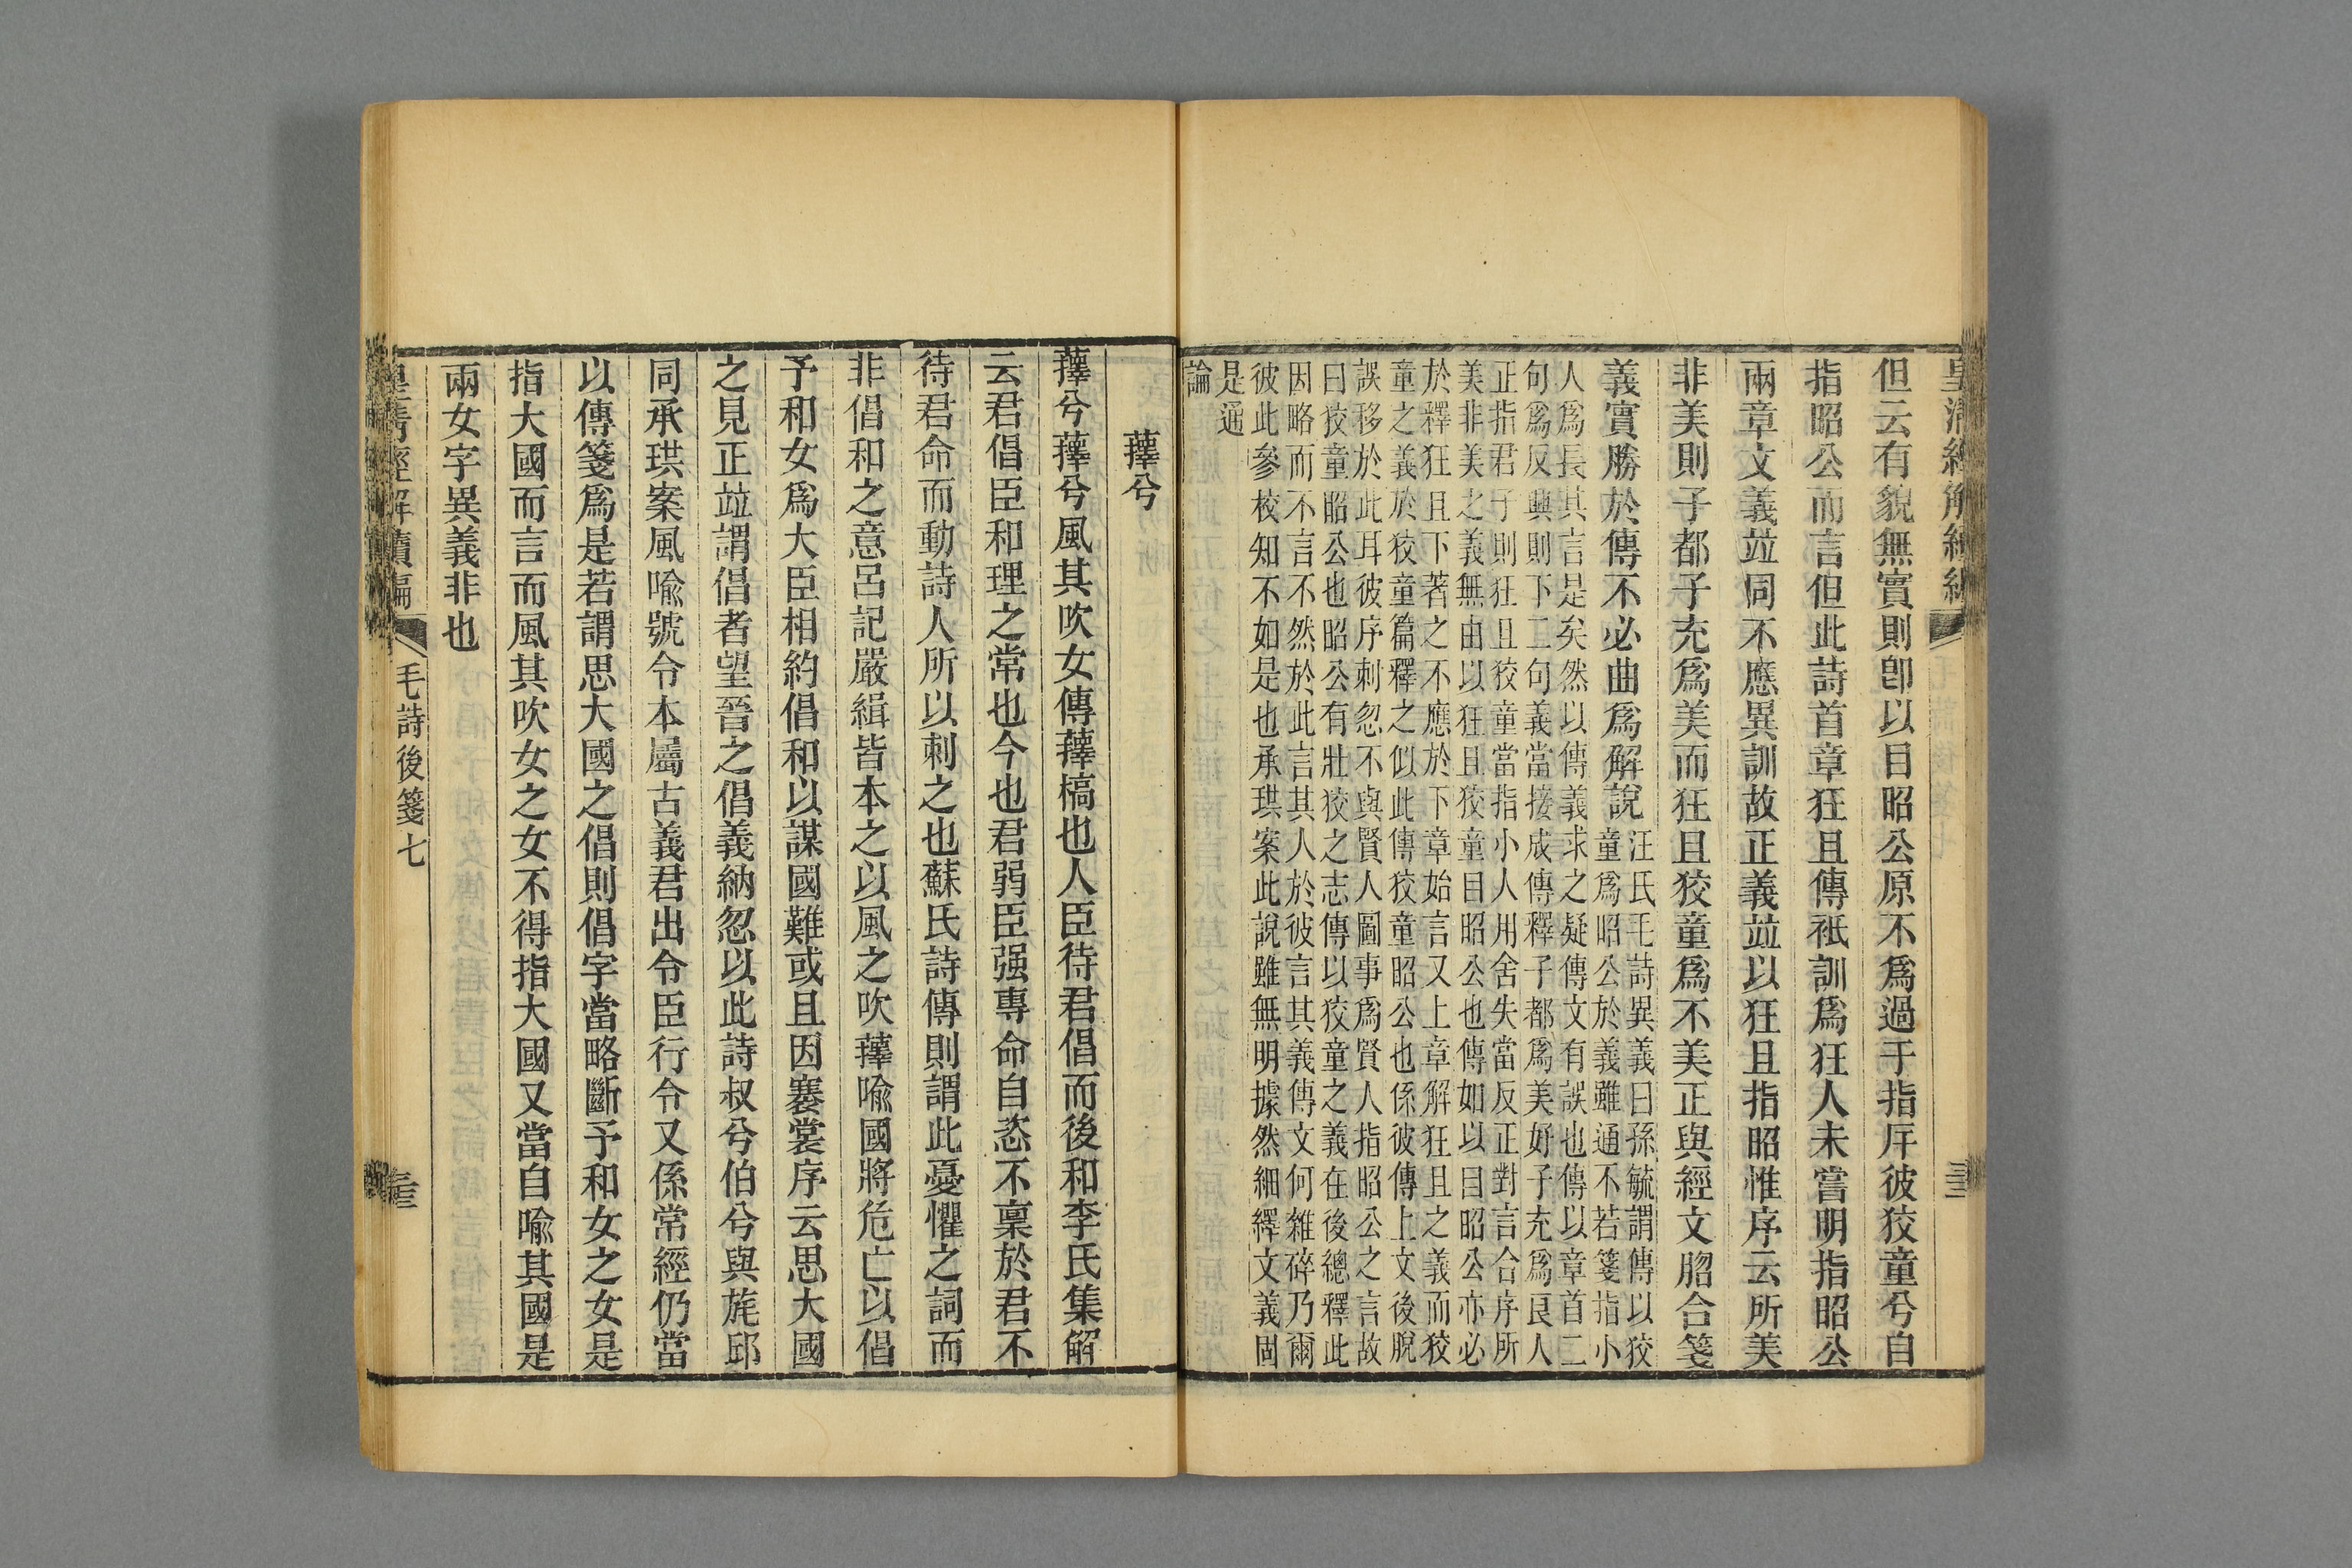 皇清經解續編
但云有貌無實則卽以目昭公原不爲過于指斥彼狡童兮自
指昭公而言但此詩首章狂且傳祗訓爲狂人未嘗明指昭公
兩章文義竝同不應異訓故正義竝以狂且指昭惟序云所美
非美則子都子充爲美而狂且狡童爲不美正與經文脗合箋
義實勝於傳不必曲爲解說
汪氏毛詩異義曰孫毓謂傳以狡
童爲昭公於義雖通不若箋指小
人爲長其言是矣然以傳義求之疑傳文有誤也傳以章首二
句爲反興則下二句義當接成傳釋子都爲美好子充爲良人
正指君子則狂且狡童當指小人用舍失當反正對言合序所
美非美之義無由以狂且狡童目昭公也傳如以曰昭公亦必
於釋狂且下著之不應於下章始言又上章解狂且之義而狡
童之義於狡童篇釋之似此傳狡童昭公也係彼傳上文後脫
誤移於此耳彼序刺忽不與賢人圖事爲賢人指昭公之言故
曰狡童昭公也昭公有壯狡之志傳以狡童之義在後總釋此
因略而不言不然於此言其人於彼言其義傳文何雜碎乃爾
彼此參校知不如是也承珙案此說雖無明據然細繹文義固
是通
論
蘀兮
蘀兮蘀兮風其吹女傳蘀槁也人臣待君倡而後和李氏集解
云君倡臣和理之常也今也君弱臣强專命自恣不稟於君不
待君命而動詩人所以刺之也蘇氏詩傳則謂此憂懼之詞而
非倡和之意呂記嚴緝皆本之以風之吹蘀喩國將危亡以倡
予和女爲大臣相約倡和以謀國難或且因褰裳序云思大國
之見正竝謂倡者望晉之倡義納忽以此詩叔兮伯兮與旄邱
同承珙案風喩號令本屬古義君出令臣行令又係常經仍當
以傳箋爲是若謂思大國之倡則倡字當略斷予和女之女是
指大國而言而風其吹女之女不得指大國又當自喩其國是
兩女字異義非也
皇清經解續編
毛詩後箋七